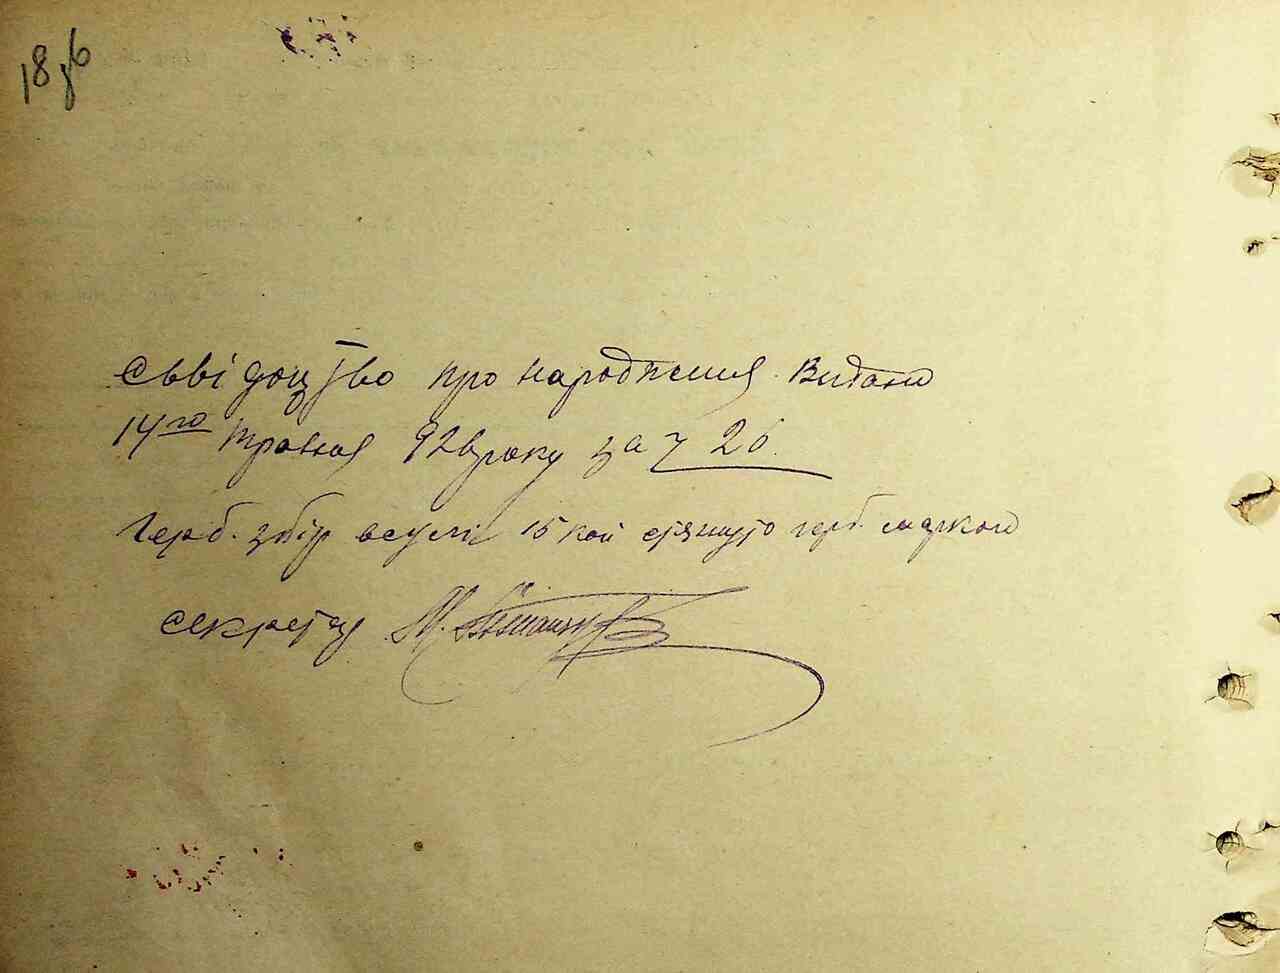 18 зв
Сьвідоцтво про народження видано
14го травня 92 року за ч 26.
Герб. збір в сумі 15 коп стягнуто герб. маркою
секретар М.